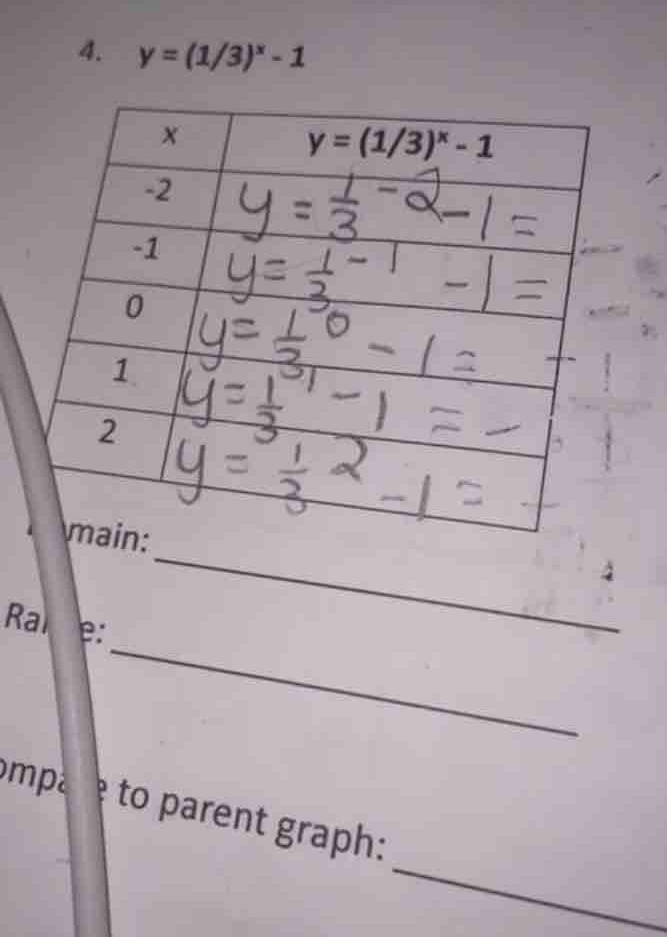 4. y = (1/3)ˣ - 1
x y = (1/3)ˣ - 1
-2 y = 1/3 ⁻² - 1 =
-1 y = 1/3 ⁻¹ - 1 =
0 y = 1/3 ⁰ - 1 =
1 y = 1/3 ¹ - 1 =
2 y = 1/3 ² - 1 =
main:
to parent graph: